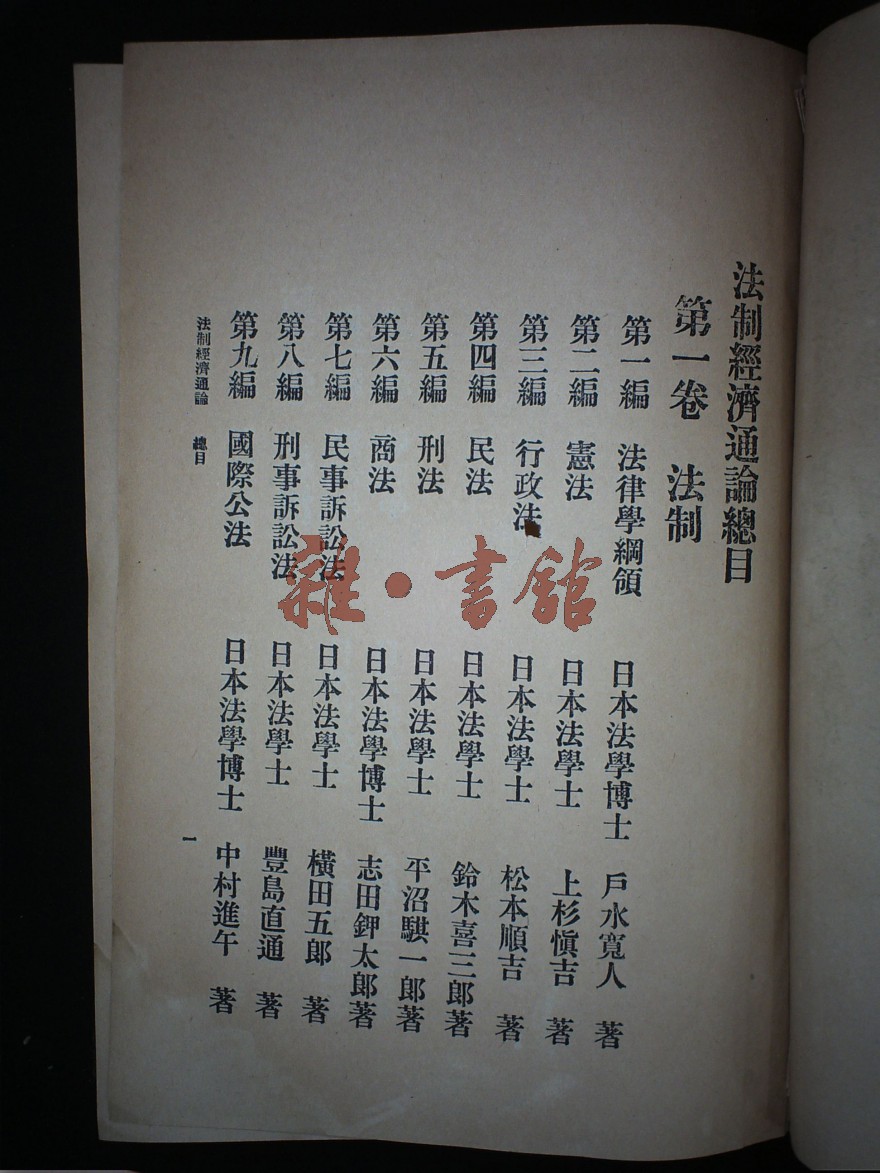 法制經濟通論總目
第一卷 法制
第一編 法律學綱領 日本法學博士 戶水寬人 著
第二編 憲法 日本法學士 上杉愼吉 著
第三編 行政法 日本法學士 松本順吉 著
第四編 民法 日本法學士 鈴木喜三郎著
第五編 刑法 日本法學士 平沼騏一郎著
第六編 商法 日本法學博士 志田鉀太郎著
第七編 民事訴訟法 日本法學士 橫田五郎 著
第八編 刑事訴訟法 日本法學士 豐島直通 著
第九編 國際公法 日本法學博士 中村進午 著
法制經濟通論 總目
一
雜·書館